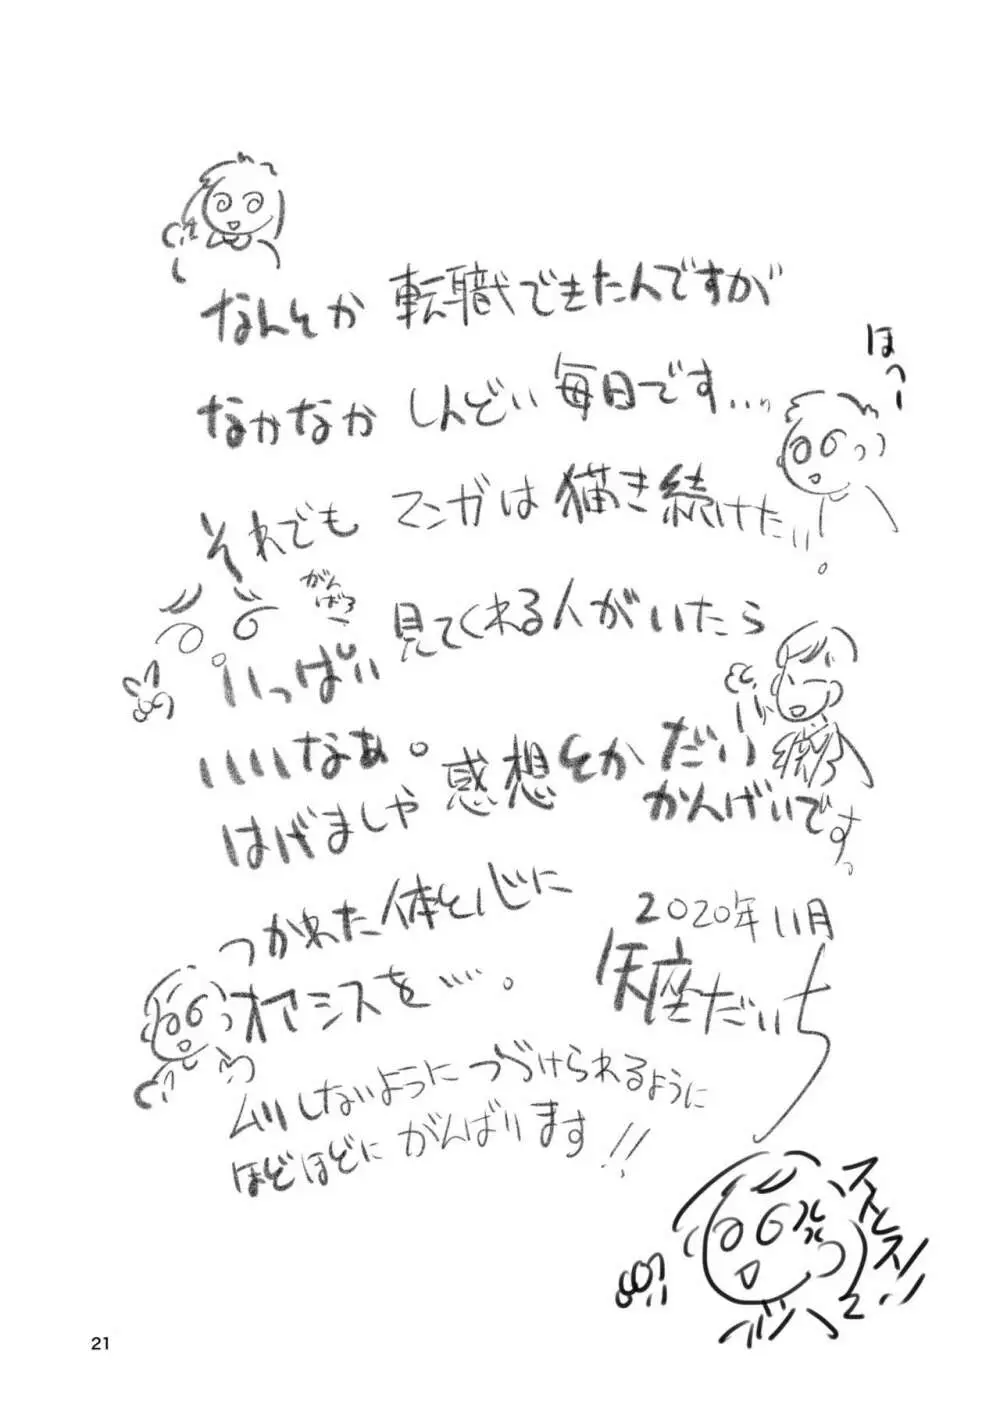 なんとか 転職できたんですが
ほっー
なかなか しんどい 毎日です…
それでも マンガは 描き続けたい。
がん
ばろー
いっぱい 見てくれる人がいたら
いいなあ。
はげましや 感想とか だい
かんげいです。
つかれた 体と心に
オアシスを…。
2020年11月
矢座だいち
ムリしないように つづけられるように
ほどほどに がんばります!!
21